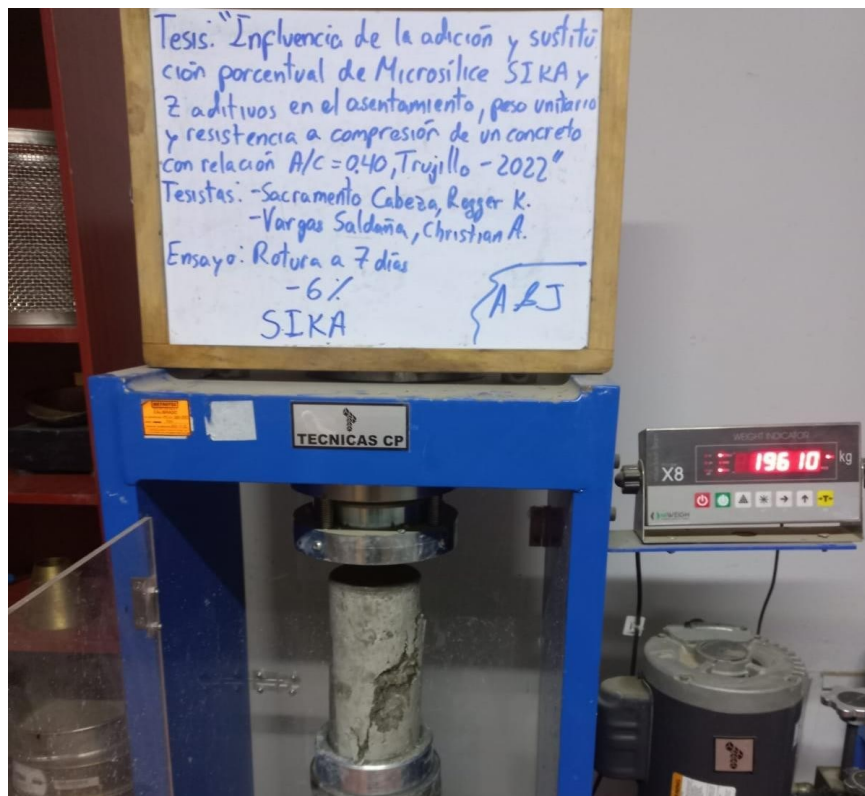 Tesis: "Influencia de la adición y sustitu
ción porcentual de Microsílice SIKA y
2 aditivos en el asentamiento, peso unitario
y resistencia a compresión de un concreto
con relación A/C = 0.40, Trujillo - 2022"
Tesistas: - Sacramento Cabeza, Rogger K.
- Vargas Saldaña, Christian A.
Ensayo: Rotura a 7 días
- 6%
SIKA
A&J
TECNICAS CP
WEIGHT INDICATOR
X8
19610 kg